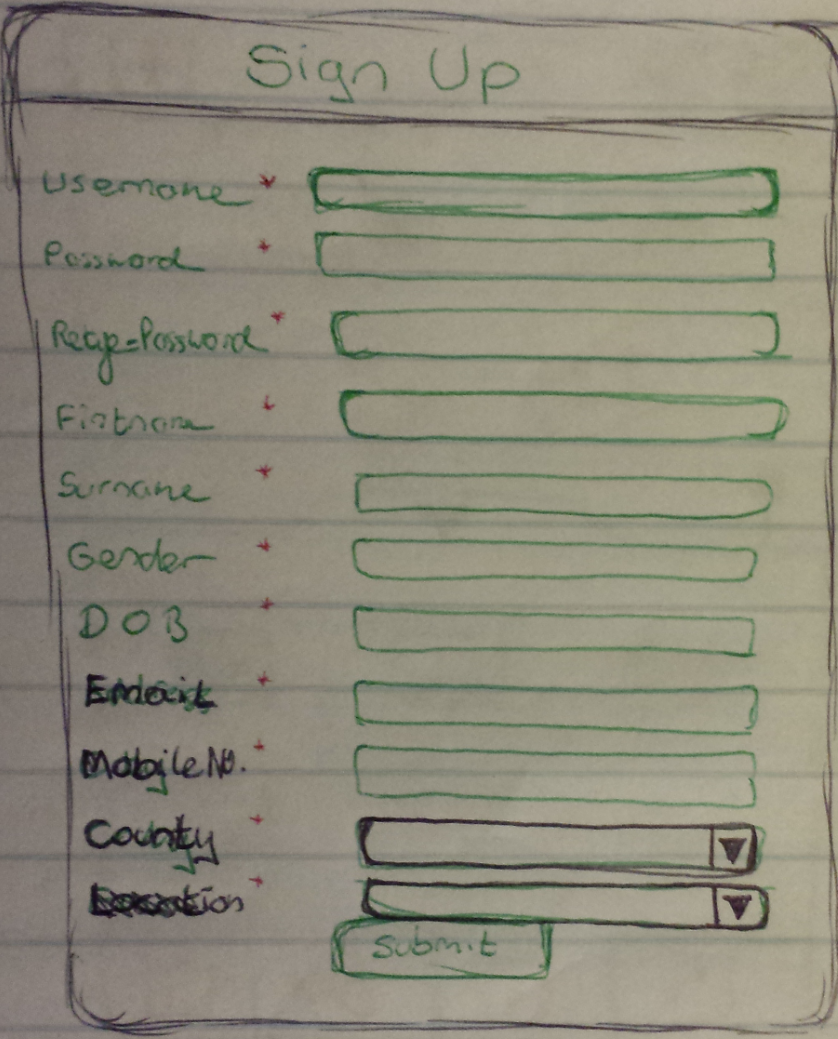 Sign Up
Username *
Password *
Retype-Password *
Firstname *
Surname *
Gender *
DOB *
Email *
Mobile No. *
County *
*
Submit